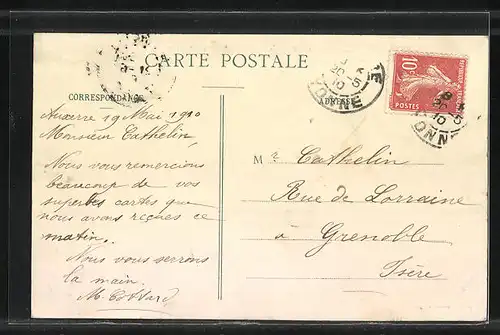 CARTE POSTALE
CORRESPONDANCE
ADRESSE
20-5
10
YONNE
10c
POSTES
20-5
10
YONNE
Auxerre 19 Mai 1910
Monsieur Cathelin,
Nous vous remercions
beaucoup de vos
superbes cartes que
nous avons reçues ce
matin.
Nous vous serrons
la main.
Mr. Cathelin
Rue de Lorraine
à Grenoble
Isère